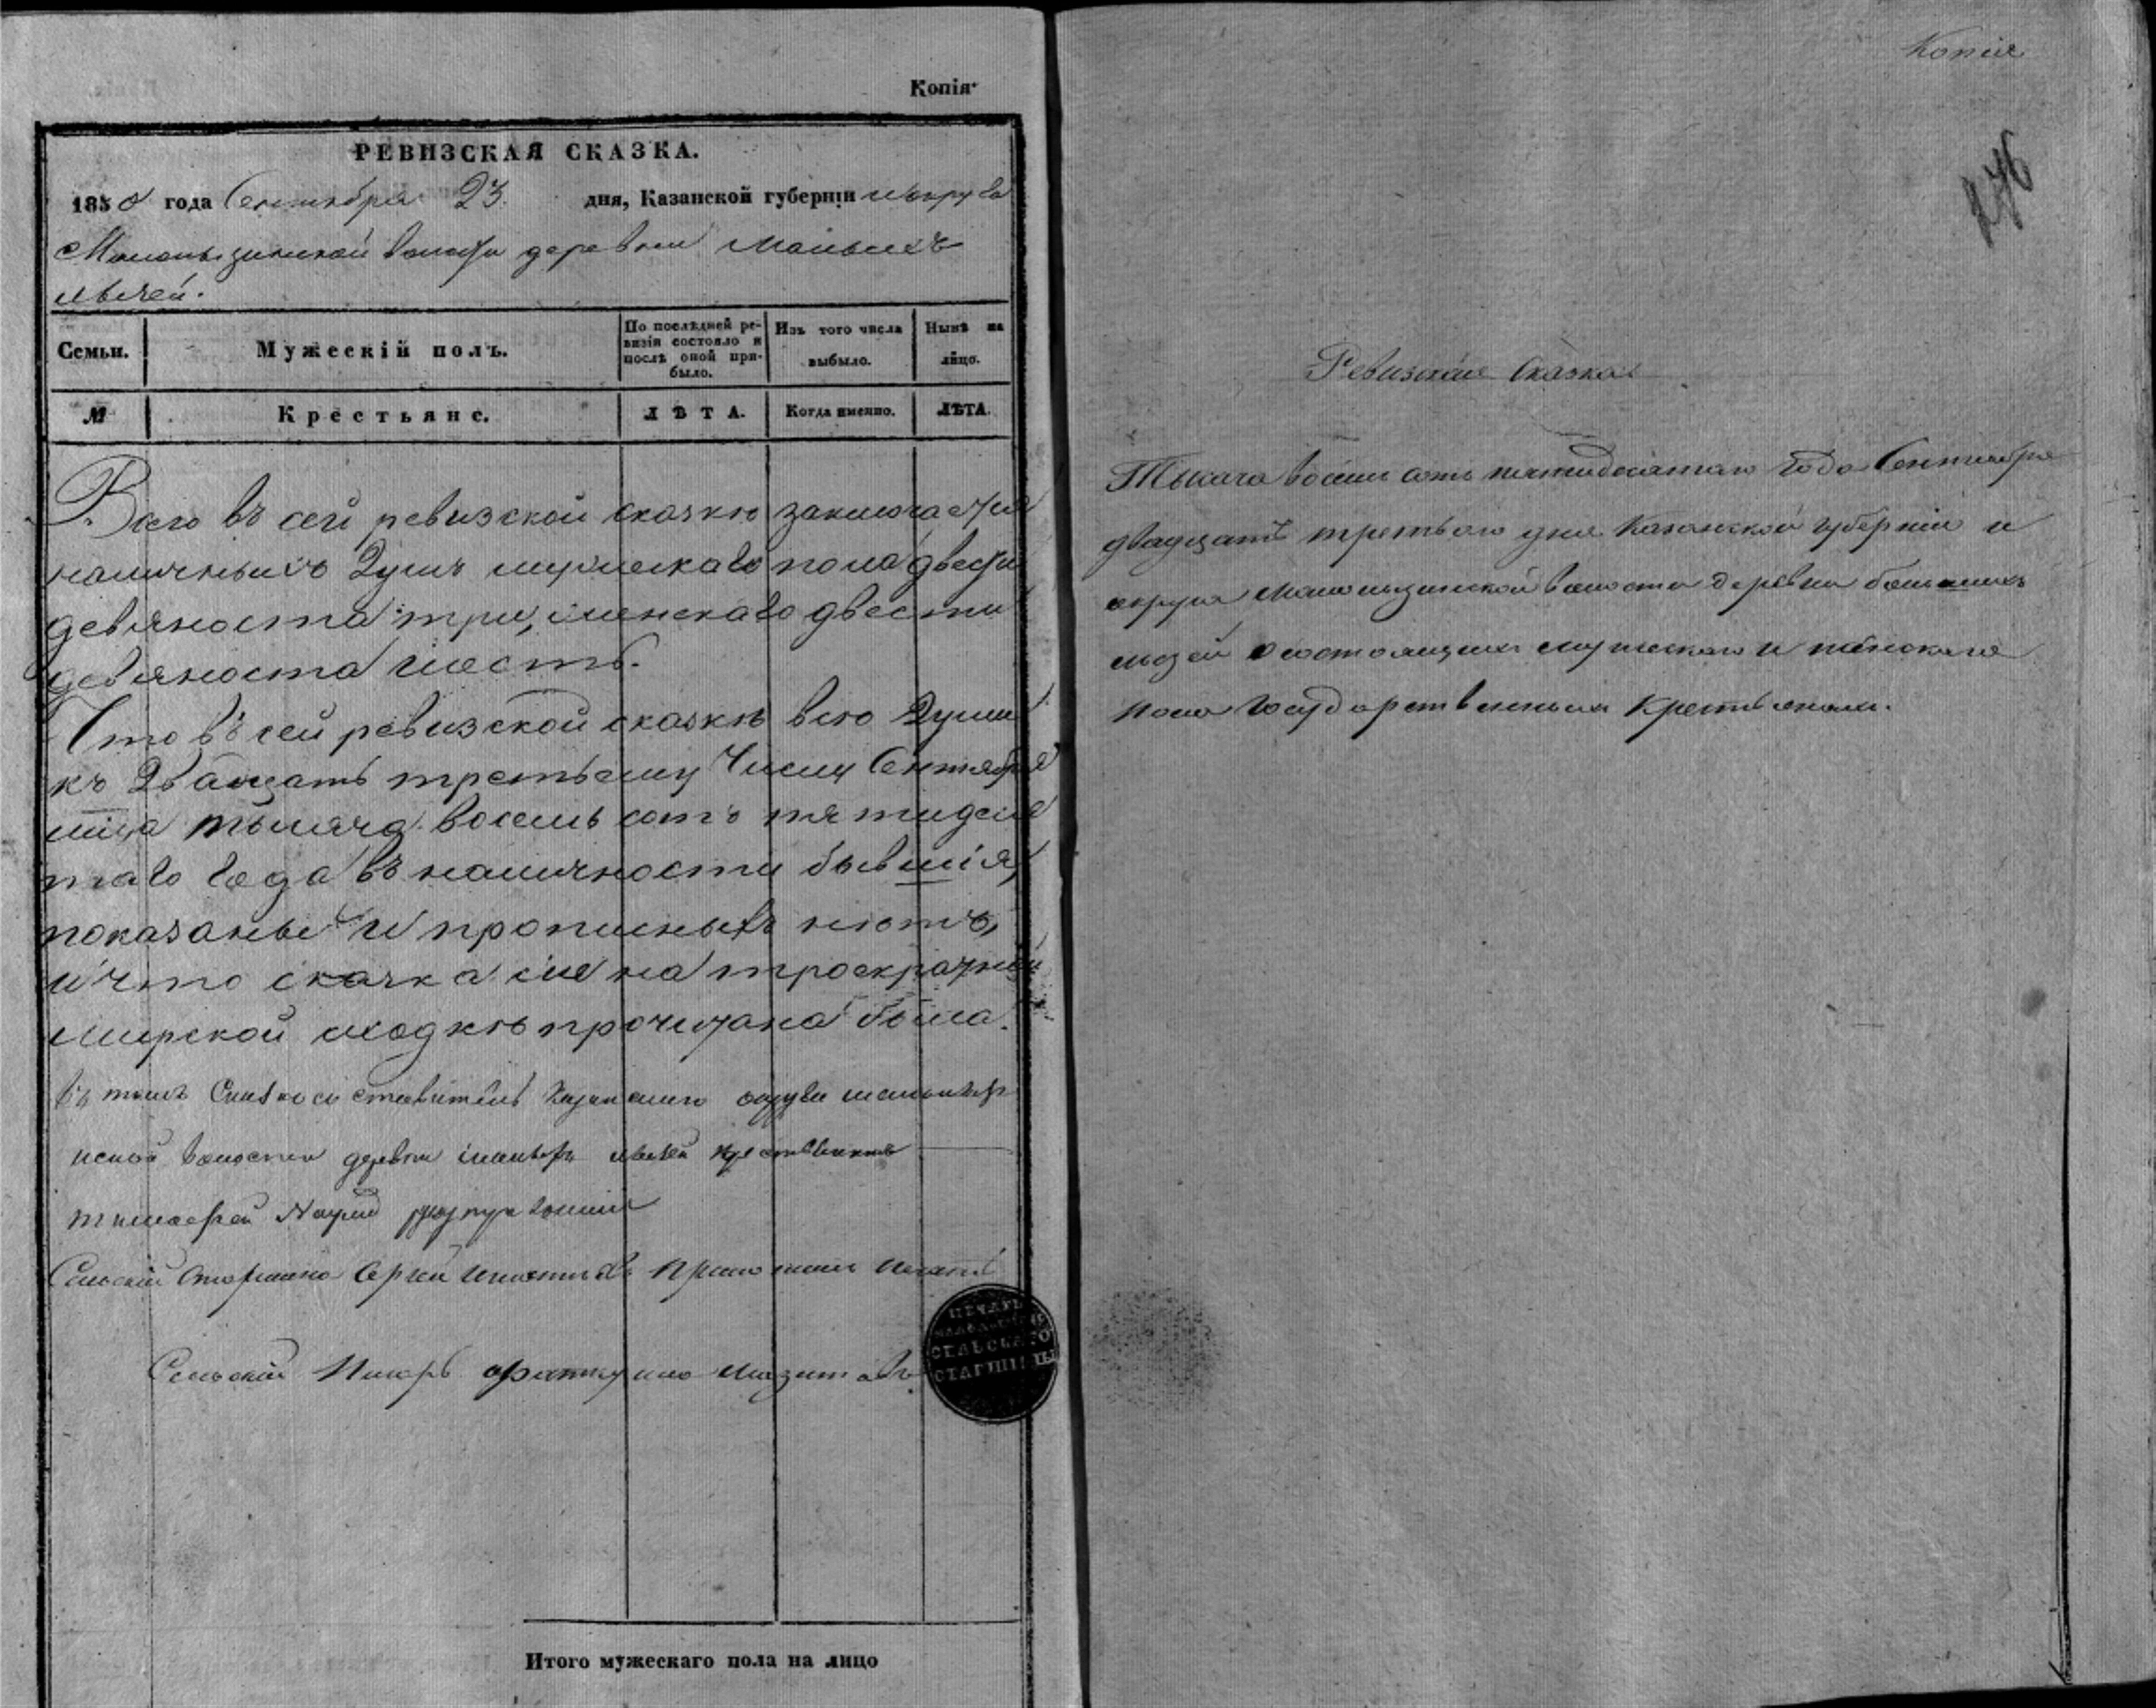 Копія
РЕВИЗСКАЯ СКАЗКА.
1850 года Сентября 23. дня, Казанской губерніи и округа
волости деревни Малыхъ
Семьи.
Мужескій полъ.
По послѣдней ре-
визіи состояло и
послѣ оной при-
было.
Изъ того числа
выбыло.
Нынѣ на
лицо.
№
Крестьяне.
ЛѢТА.
Когда именно.
ЛѢТА.
Всего въ сей ревизской сказкѣ заключается
наличныхъ Душъ мужескаго пола двести
девяноста три, женскаго двести
девяноста шесть.
Что въ сей ревизской сказкѣ всѣ Души
къ Двадцать третьему Числу Сентября
мѣца тысяча восемь сотъ пятидеся
таго года въ наличности бывшія,
показаны и прописныхъ нѣтъ,
и что сказка сія на троекратной
мирской сходкѣ прочитана была.
Въ томъ Казанскаго округа
волости деревни
Сельскій Старшина приложилъ печать
Сельскій Писарь
ПЕЧАТЬ
СЕЛЬСКАГО
СТАРШИНЫ
Итого мужескаго пола на лицо
Копія
276
Ревизская Сказка
Тысяча восемь сотъ пятидесятаго года Сентября
двадцать третьяго дня Казанской губерніи и
округа волости деревни большихъ
о состоящихъ мужескаго и женскаго
пола Государственныхъ Крестьянахъ.